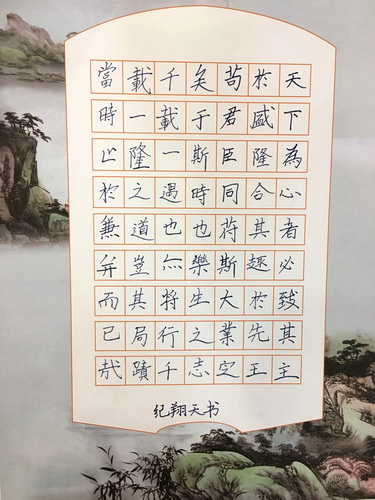 天下為心者必致其主
於盛隆合其趣於先王
苟君臣同苻斯大業定
矣于斯時也樂生之志
千載一遇也亦將行千
載一隆之道豈其局蹟
當時止於兼并而已哉
纪翔天书